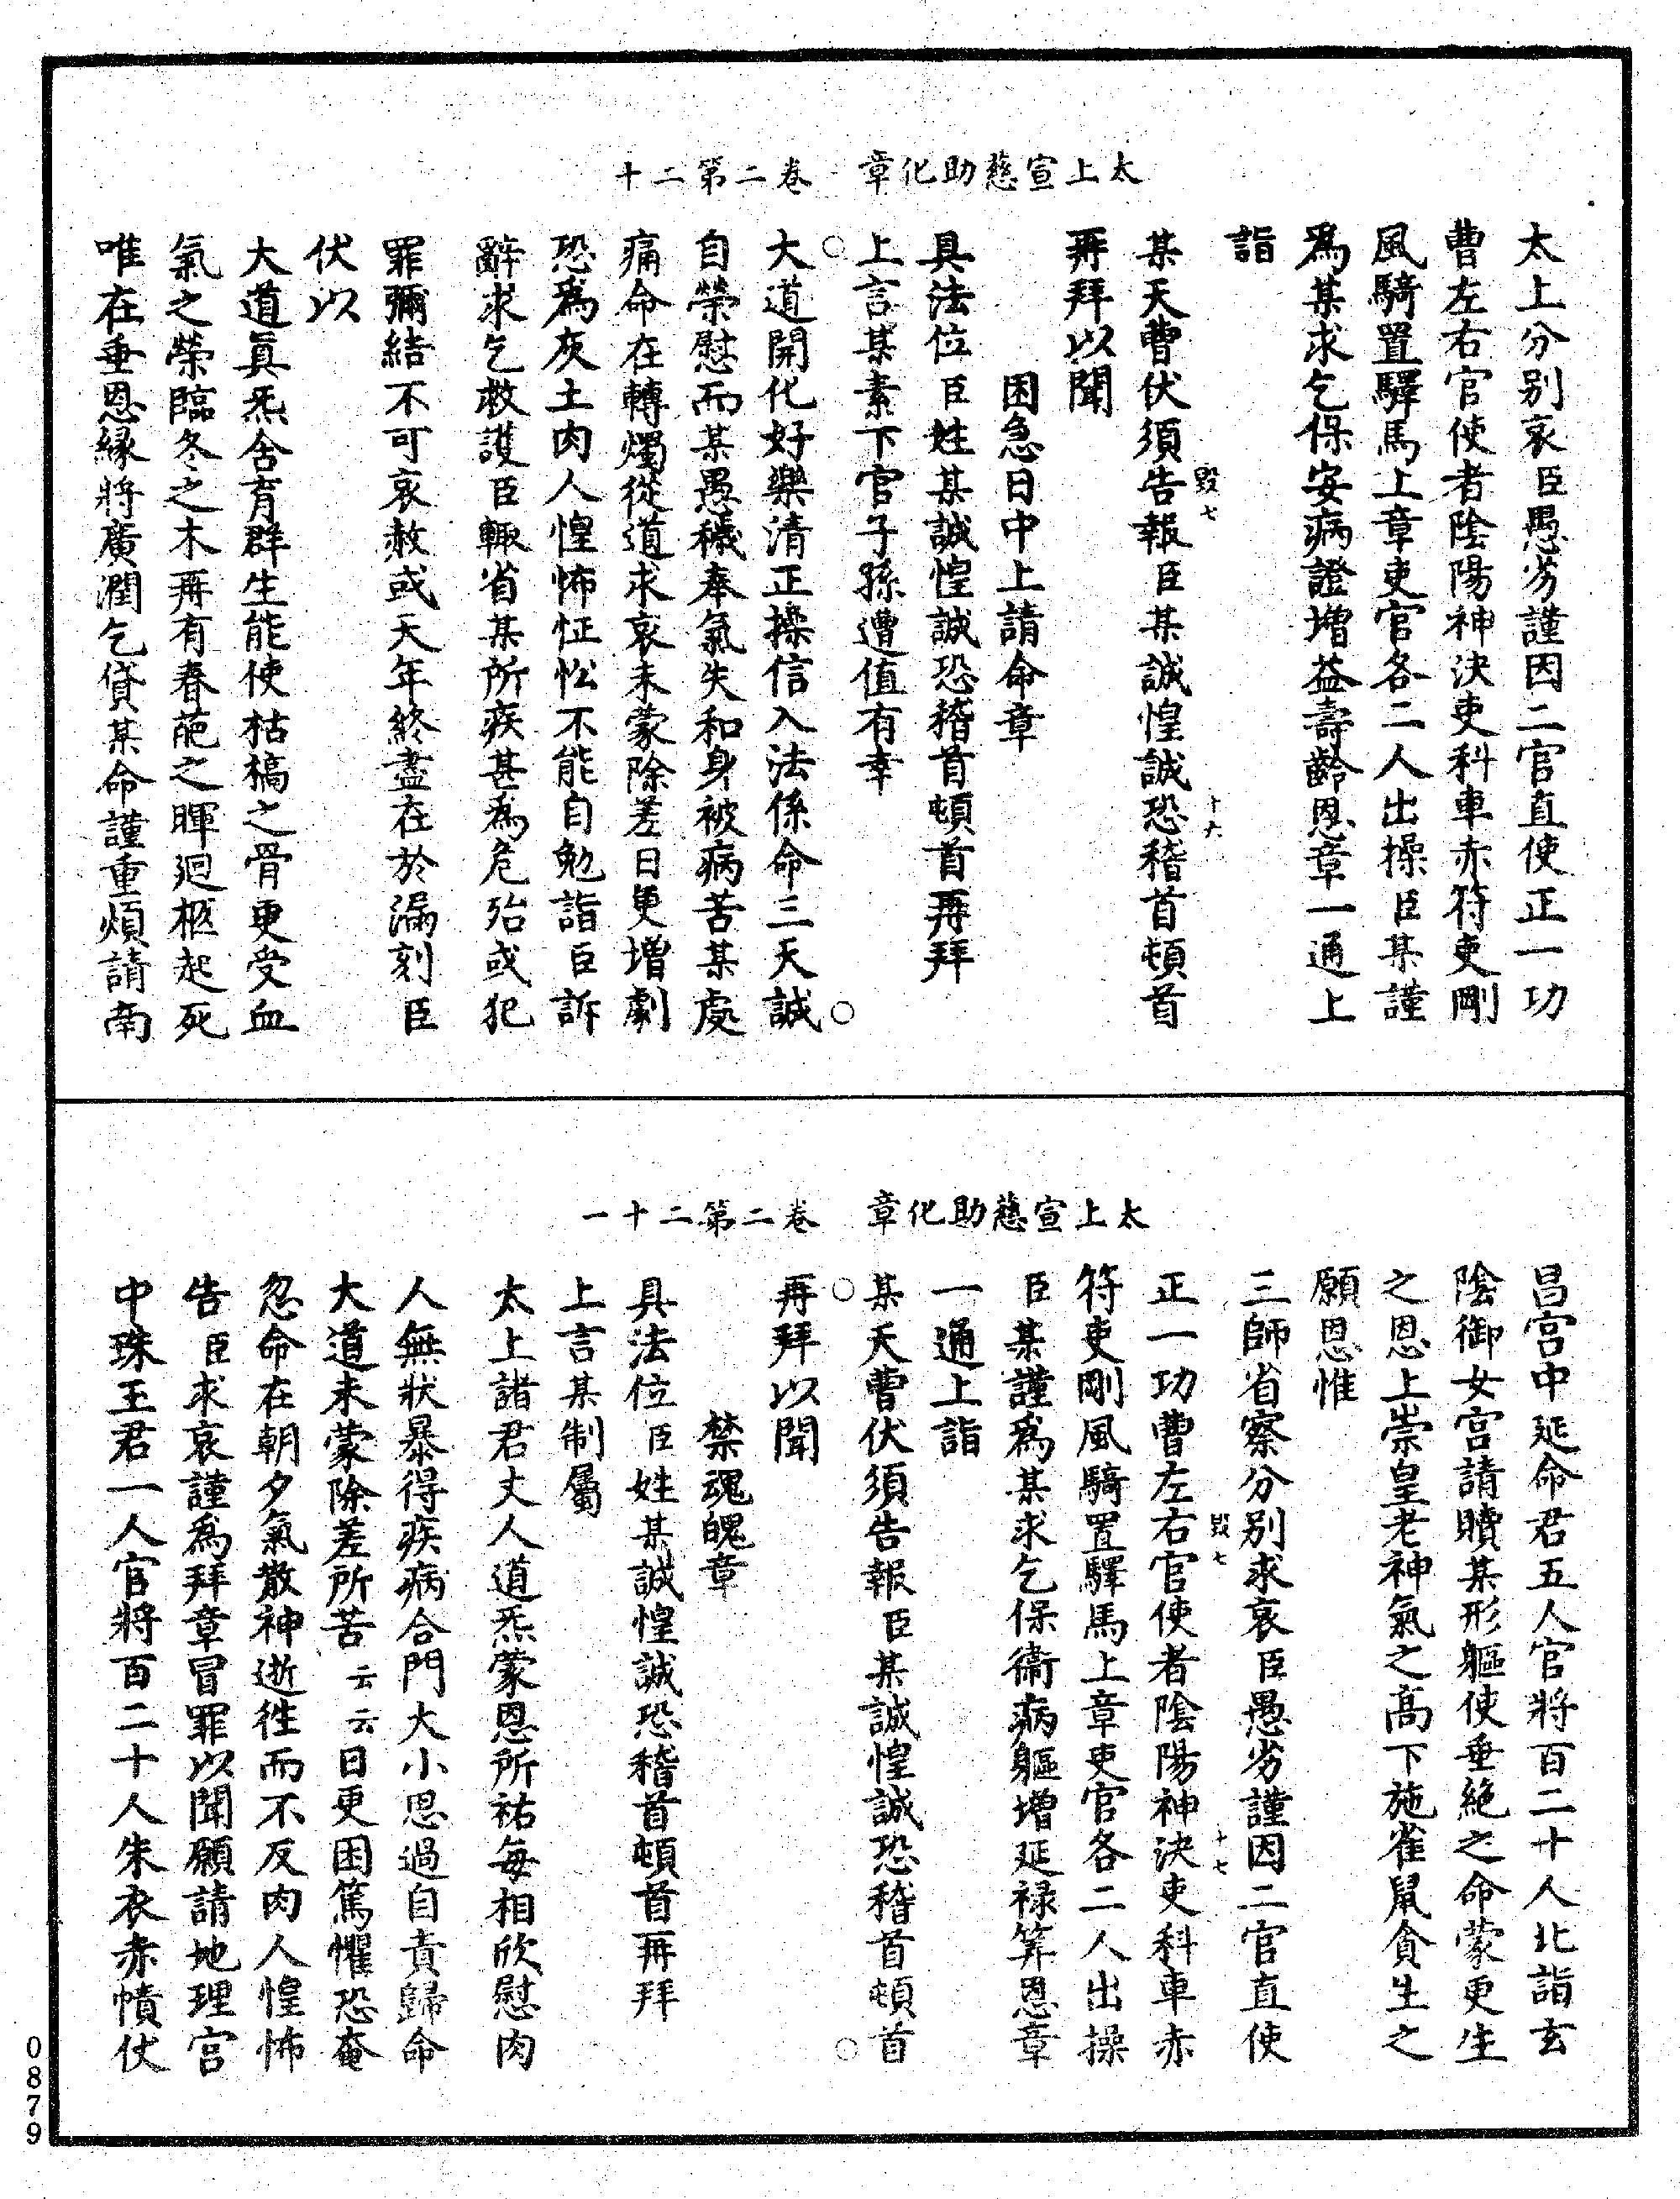 太上宣慈助化章　卷二第二十
太上分別哀臣愚劣謹因二官直使正一功
曹左右官使者陰陽神決吏科車赤符吏剛
風騎置驛馬上章吏官各二人出操臣某謹
爲某求乞保安病證增益壽齡恩章一通上
詣
毀七　十六
某天曹伏須告報臣某誠惶誠恐稽首頓首
再拜以聞
困急日中上請命章
具法位臣姓某誠惶誠恐稽首頓首再拜
上言某素下官子孫遭值有幸
大道開化好樂清正操信入法係命三天誠
自榮慰而某愚穢奉氣失和身被病苦某處
痛命在轉燭從道求哀未蒙除差日更增劇
恐爲灰土肉人惶怖怔忪不能自勉詣臣訴
辭求乞救護臣輒省某所疾甚爲危殆或犯
罪彌結不可哀赦或天年終盡在於漏刻臣
伏以
大道眞炁含育群生能使枯槁之骨更受血
氣之榮臨冬之木再有春葩之暉迴柩起死
唯在垂恩緣將廣潤乞貸某命謹重煩請南
太上宣慈助化章　卷二第二十一
昌宮中延命君五人官將百二十人北詣玄
陰御女宮請贖某形軀使垂絶之命蒙更生
之恩上崇皇老神氣之高下施雀鼠貪生之
願恩惟
三師省察分別求哀臣愚劣謹因二官直使
毀七　十七
正一功曹左右官使者陰陽神決吏科車赤
符吏剛風騎置驛馬上章吏官各二人出操
臣某謹爲某求乞保衛病軀增延祿筭恩章
一通上詣
某天曹伏須告報臣某誠惶誠恐稽首頓首
再拜以聞
禁魂魄章
具法位臣姓某誠惶誠恐稽首頓首再拜
上言某制屬
太上諸君丈人道炁蒙恩所祐每相欣慰肉
人無狀暴得疾病合門大小思過自責歸命
大道未蒙除差所苦云云日更困篤懼恐奄
忽命在朝夕氣散神逝徃而不反肉人惶怖
告臣求哀謹爲拜章冒罪以聞願請地理宮
中珠玉君一人官將百二十人朱衣赤幘伏
0879